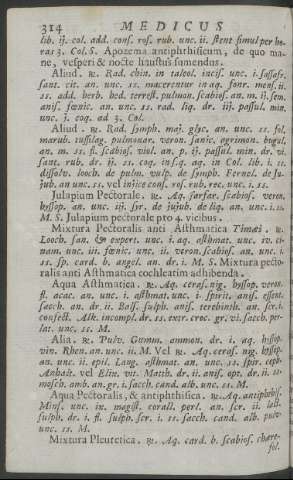 314 MEDICUS
lib. ij. col. add. conf. rof. rub. unc. ii. stent simul per ho-
ras 3. Col. S. Apozema antiphthisicum, de quo ma-
ne, vesperi & nocte haustus sumendus.
Aliud. ℞. Rad. chin. in taleol. incis. unc. i. sassafr.
sant. cit. an. unc. ss. macerentur in aq. font. mens. ii.
ss. add. herb. hed. terrest. pulmon. scabios. an. m. ij. sem.
anis. fænic. an. unc. ss. rad. liq. dr. iij. passul. min.
unc. j. coq. ad 3. Col.
Aliud. ℞. Rad. symph. maj. glyc. an. unc. ss. fol.
marub. tussilag. pulmonar. veron. sanic. agrimon. bugul.
an. m. ss. fl. scabios. viol. an. p. ij. passul. min. dr. vi.
sant. rub. dr. ij. ss. coq. in s.q. aq. in Col. lib. i. ss.
dissolv. looch. de pulm. vulp. de symph. Fernel. de Ju-
jub. an unc. ss. vel injice conf. ros. rub. rec. unc. i. ss.
Julapium Pectorale. ℞. Aq. farfar. scabios. veron.
hyssop. an. unc. iij. syr. de jujub. de liq. an. unc. i. ss.
M. S. Julapium pectorale pro 4. vicibus.
Mixtura Pectoralis anti Asthmatica Timæi. ℞.
Looch. san. & expert. unc. i. aq. asthmat. unc. iv. ci-
nam. unc. iii. fœnic. unc. ii. veron. scabios. an. unc. i.
ss. sp. card. b. angel. an. dr. i. M. S. Mixtura pecto-
ralis anti Asthmatica cochleatim adhibenda.
Aqua Asthmatica. ℞. Aq. ceras. nig. hyssop. veron.
fl. acac. an. unc. i. asthmat. unc. i. spirit. anis. essent.
sacch. an. dr. ii. Bals. sulph. anis. terebinth. an. scr. i.
confect. Alk. incompl. dr. ss. extr. croc. gr. vi. sacch. per-
lat. unc. ss. M.
Alia. ℞. Pulv. Gumm. ammon. dr. i. aq. hyssop.
vin. Rhen. an. unc. ii. M. Vel ℞. Aq. ceras. nig. hyssop.
an. unc. ii. epil. Lang. asthmat. an. unc. ss. spir. cepe.
Anhalt. vel Elix. vit. Matth. dr. ii. anis. opt. dr. ii. ss.
mosch. amb. an. gr. i. sacch. cand. alb. unc. ss. M.
Aqua Pectoralis, & antiphthisica. ℞. Aq. antiphthis.
Mins. unc. in. magist. corall. perl. an. scr. ii. lact.
sulph. dr. i. fl. sulph. scr. i. ss. sacch. cand. alb. pulv.
unc. ss. M.
Mixtura Pleuretica. ℞. Aq. card. b. scabios. chære-
fol.